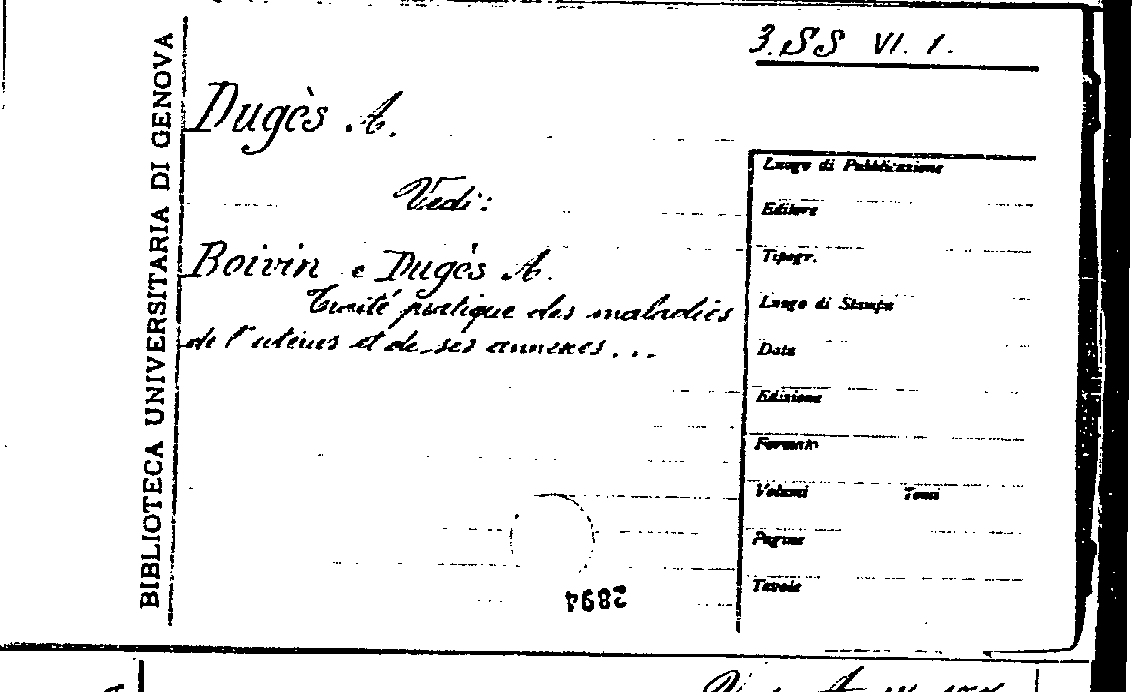 3.SS VI. 1.
BIBLIOTECA UNIVERSITARIA DI GENOVA
Dugès A.
Vedi:
Boivin e Dugès A.
Traité pratique des maladies
de l'utérus et de ses annexes...
Luogo di Pubblicazione
Editore
Tipogr.
Luogo di Stampa
Data
Edizione
Formato
Volumi Tomi
Pagine
Tavole
2894